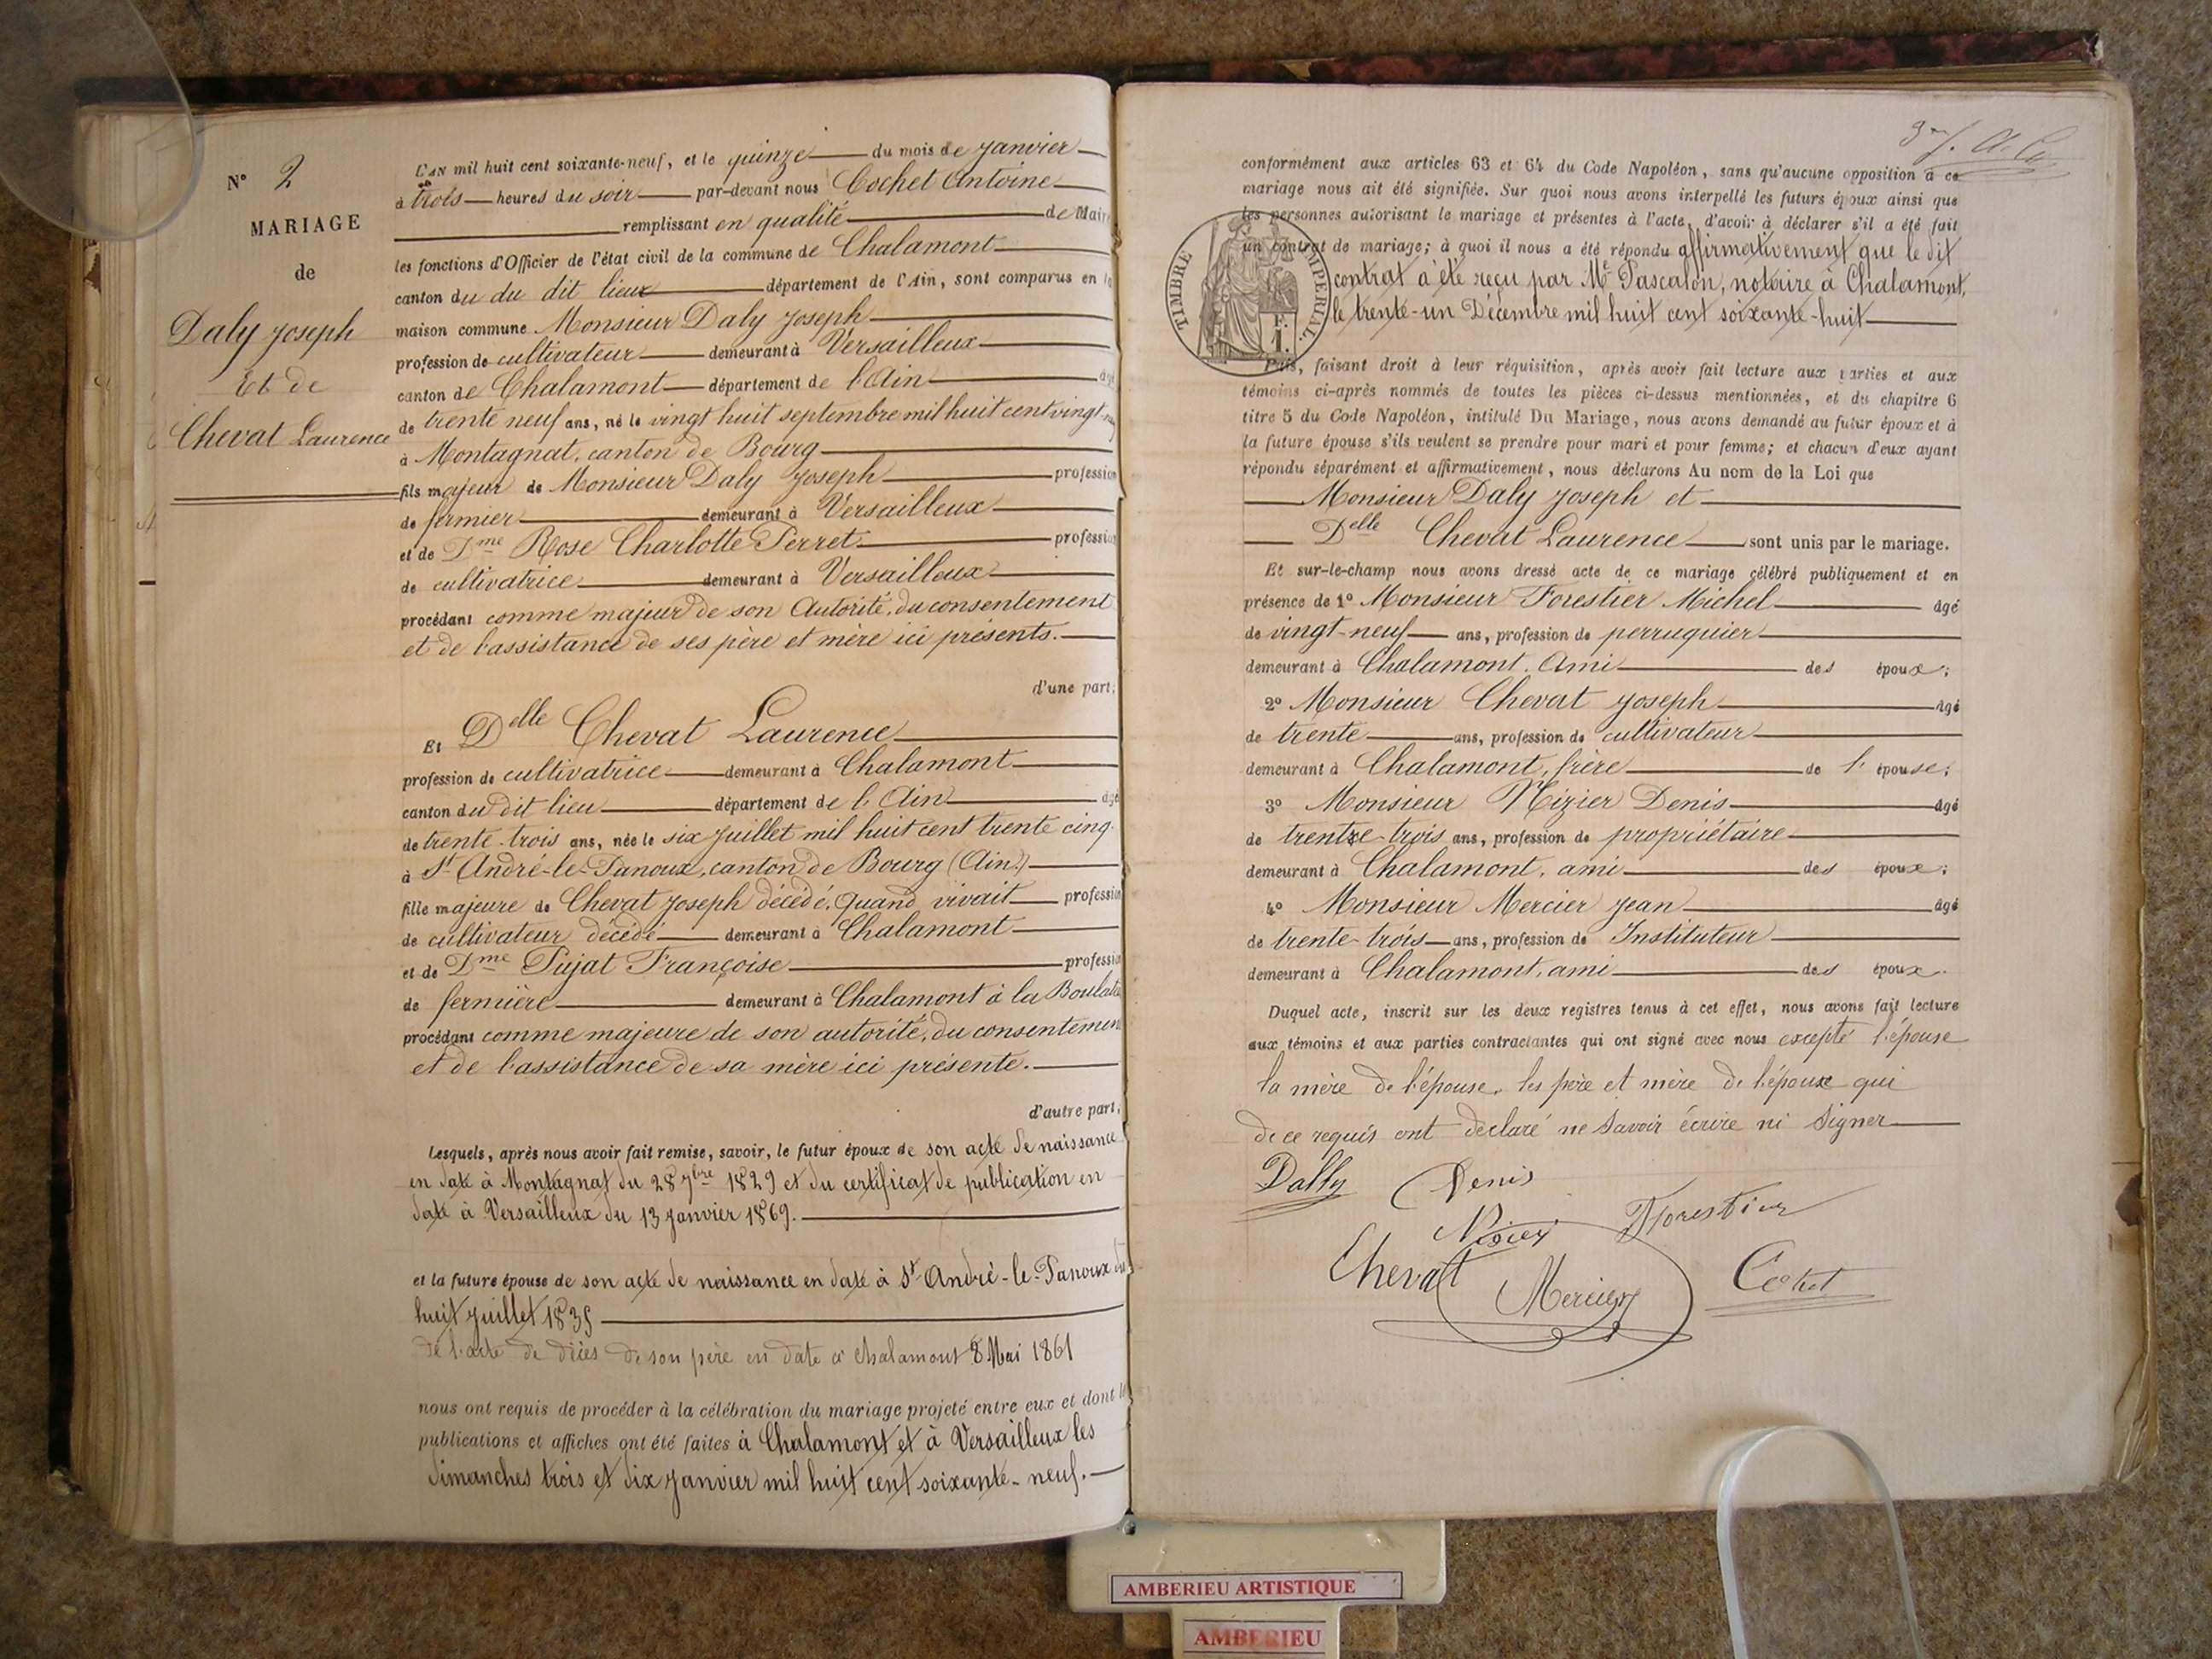 N° 2
MARIAGE
de
Daly Joseph
Et de
Chevat Laurence
L'AN mil huit cent soixante-neuf, et le quinze du mois de Janvier
à trois heures du soir par-devant nous Cochet Antoine
remplissant en qualité de Maire
les fonctions d'Officier de l'état civil de la commune de Chalamont
canton du du dit lieu département de l'Ain, sont comparus en la
maison commune Monsieur Daly Joseph
profession de cultivateur demeurant à Versailleux
canton de Chalamont département de l'Ain âgé
de trente neuf ans, né le vingt huit septembre mil huit cent vingt neuf
à Montagnat, canton de Bourg
fils majeur de Monsieur Daly Joseph profession
de fermier demeurant à Versailleux
et de Dme Rose Charlotte Perret profession
de cultivatrice demeurant à Versailleux
procédant comme majeur de son Autorité, du consentement
et de l'assistance de ses père et mère ici présents.
d'une part;
Et Delle Chevat Laurence
profession de cultivatrice demeurant à Chalamont
canton du dit lieu département de l'Ain âgé
de trente-trois ans, née le six Juillet mil huit cent trente cinq
à St André-le-Panoux, canton de Bourg (Ain)
fille majeure de Chevat Joseph décédé, quand vivait profession
de cultivateur décédé demeurant à Chalamont
et de Dme Pujat Françoise profession
de fermière demeurant à Chalamont à la
procédant comme majeure de son autorité, du consentement
et de l'assistance de sa mère ici présente.
d'autre part,
Lesquels, après nous avoir fait remise, savoir, le futur époux de son acte de naissance
en date à Montagnat du 28 7bre 1829 et du certificat de publication en
date à Versailleux du 13 Janvier 1869.
et la future épouse de son acte de naissance en date à St André-le-Panoux du
huit Juillet 1835
de l'acte de décès de son père en date à Chalamont 8 Mai 1861
nous ont requis de procéder à la célébration du mariage projeté entre eux et dont les
publications et affiches ont été faites à Chalamont et à Versailleux les
dimanches trois et dix Janvier mil huit cent soixante-neuf.
conformément aux articles 63 et 64 du Code Napoléon, sans qu'aucune opposition à ce
mariage nous ait été signifiée. Sur quoi nous avons interpellé les futurs époux ainsi que
les personnes autorisant le mariage et présentes à l'acte, d'avoir à déclarer s'il a été fait
un contrat de mariage; à quoi il nous a été répondu affirmativement que le dit
contrat a été reçu par Me Pascalon, notaire à Chalamont,
le trente-un Décembre mil huit cent soixante-huit
TIMBRE IMPERIAL.
F.
1.
Puis, faisant droit à leur réquisition, après avoir fait lecture aux parties et aux
témoins ci-après nommés de toutes les pièces ci-dessus mentionnées, et du chapitre 6
titre 5 du Code Napoléon, intitulé Du Mariage, nous avons demandé au futur époux et à
la future épouse s'ils veulent se prendre pour mari et pour femme; et chacun d'eux ayant
répondu séparément et affirmativement, nous déclarons Au nom de la Loi que
Monsieur Daly Joseph et
Delle Chevat Laurence sont unis par le mariage.
Et sur-le-champ nous avons dressé acte de ce mariage célébré publiquement et en
présence de 1° Monsieur Forestier Michel âgé
de vingt-neuf ans, profession de perruquier
demeurant à Chalamont. Ami des époux;
2° Monsieur Chevat Joseph âgé
de trente ans, profession de cultivateur
demeurant à Chalamont, frère de l'épouse;
3° Monsieur Nizier Denis âgé
de trente-trois ans, profession de propriétaire
demeurant à Chalamont, ami des époux;
4° Monsieur Mercier Jean âgé
de trente-trois ans, profession de Instituteur
demeurant à Chalamont, ami des époux.
Duquel acte, inscrit sur les deux registres tenus à cet effet, nous avons fait lecture
aux témoins et aux parties contractantes qui ont signé avec nous excepté l'épouse
la mère de l'épouse, les père et mère de l'époux qui
de ce requis ont déclaré ne savoir écrire ni signer
Dally Denis
Nizier Forestier
Chevat Mercier Cochet
AMBERIEU ARTISTIQUE
AMBERIEU